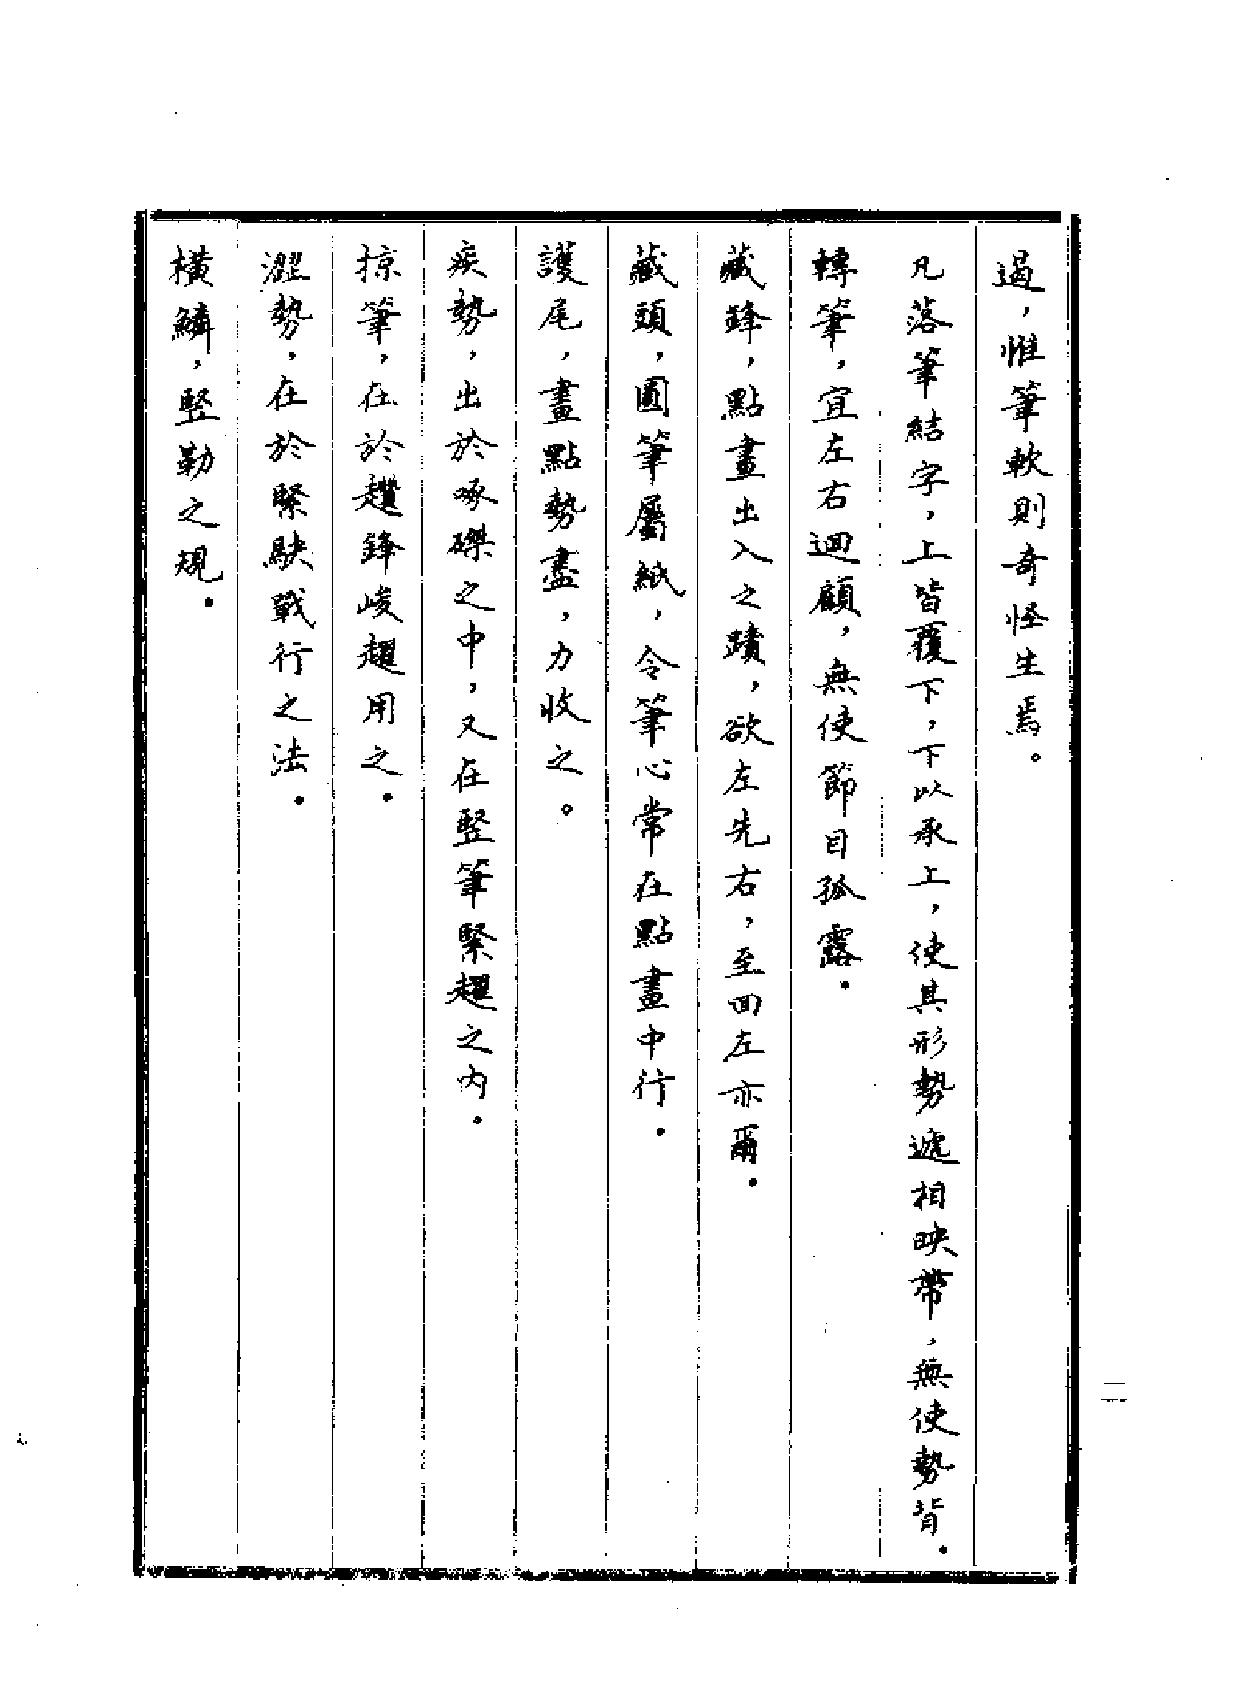 過，惟筆軟則奇怪生焉。
凡落筆結字，上皆覆下，下以承上，使其形勢遞相映帶，無使勢背。
轉筆，宜左右迴顧，無使節目孤露。
藏鋒，點畫出入之蹟，欲左先右，至回左亦爾。
藏頭，圓筆屬紙，令筆心常在點畫中行。
護尾，畫點勢盡，力收之。
疾勢，出於啄磔之中，又在竪筆緊趯之內。
掠筆，在於趲鋒峻趯用之。
澀勢，在於緊駃戰行之法。
橫鱗，竪勒之規。
二